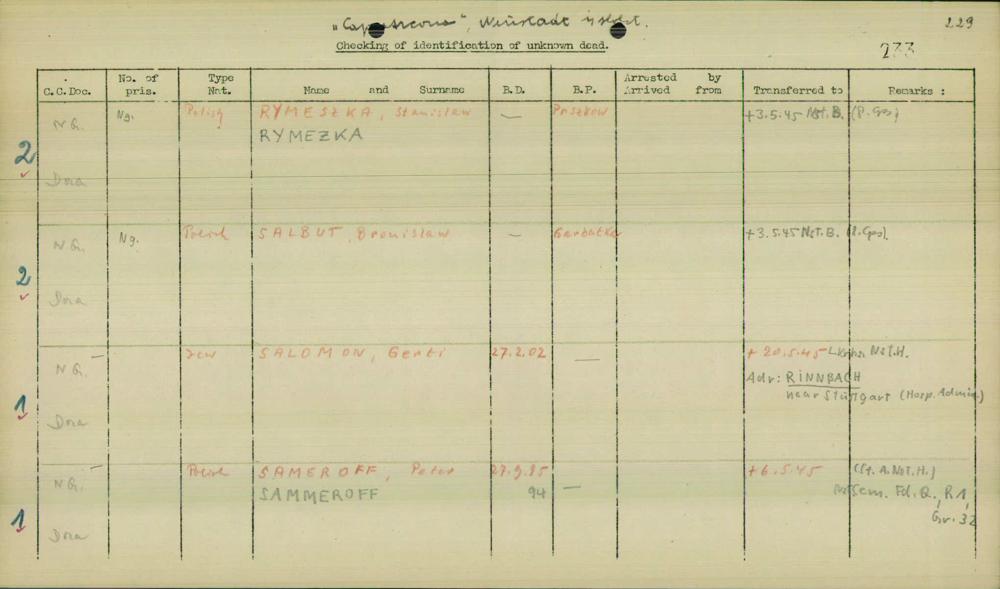 "Cap Arcona", Neustadt i/Holst.
229
Checking of identification of unknown dead.
233
C.C.Doc. No. of pris. Type Nat. Name and Surname B.D. B.P. Arrested by Arrived from Transferred to Remarks :
2 N G. Ng. Polish RYMESZKA, Stanislaw — +3.5.45 Nst.B. (P.Gps)
RYMEZKA
Dora
2 N G. Ng. Polish SALBUT, Bronislaw — Garbatka +3.5.45 Nst.B. (P.Gps).
Dora
1 N G. — Jew SALOMON, Gerti 27.2.02 — + 20.5.45 Nst.H.
Adr: RINNBACH
near Stuttgart (Hosp. Admin.)
Dora
1 N G. — Polish SAMEROFF, Peter 27.9.85 — +6.5.45 (St. A. Nst. H.)
SAMMEROFF 94 Cem. Fd. Q., R1,
Gr. 32
Dora